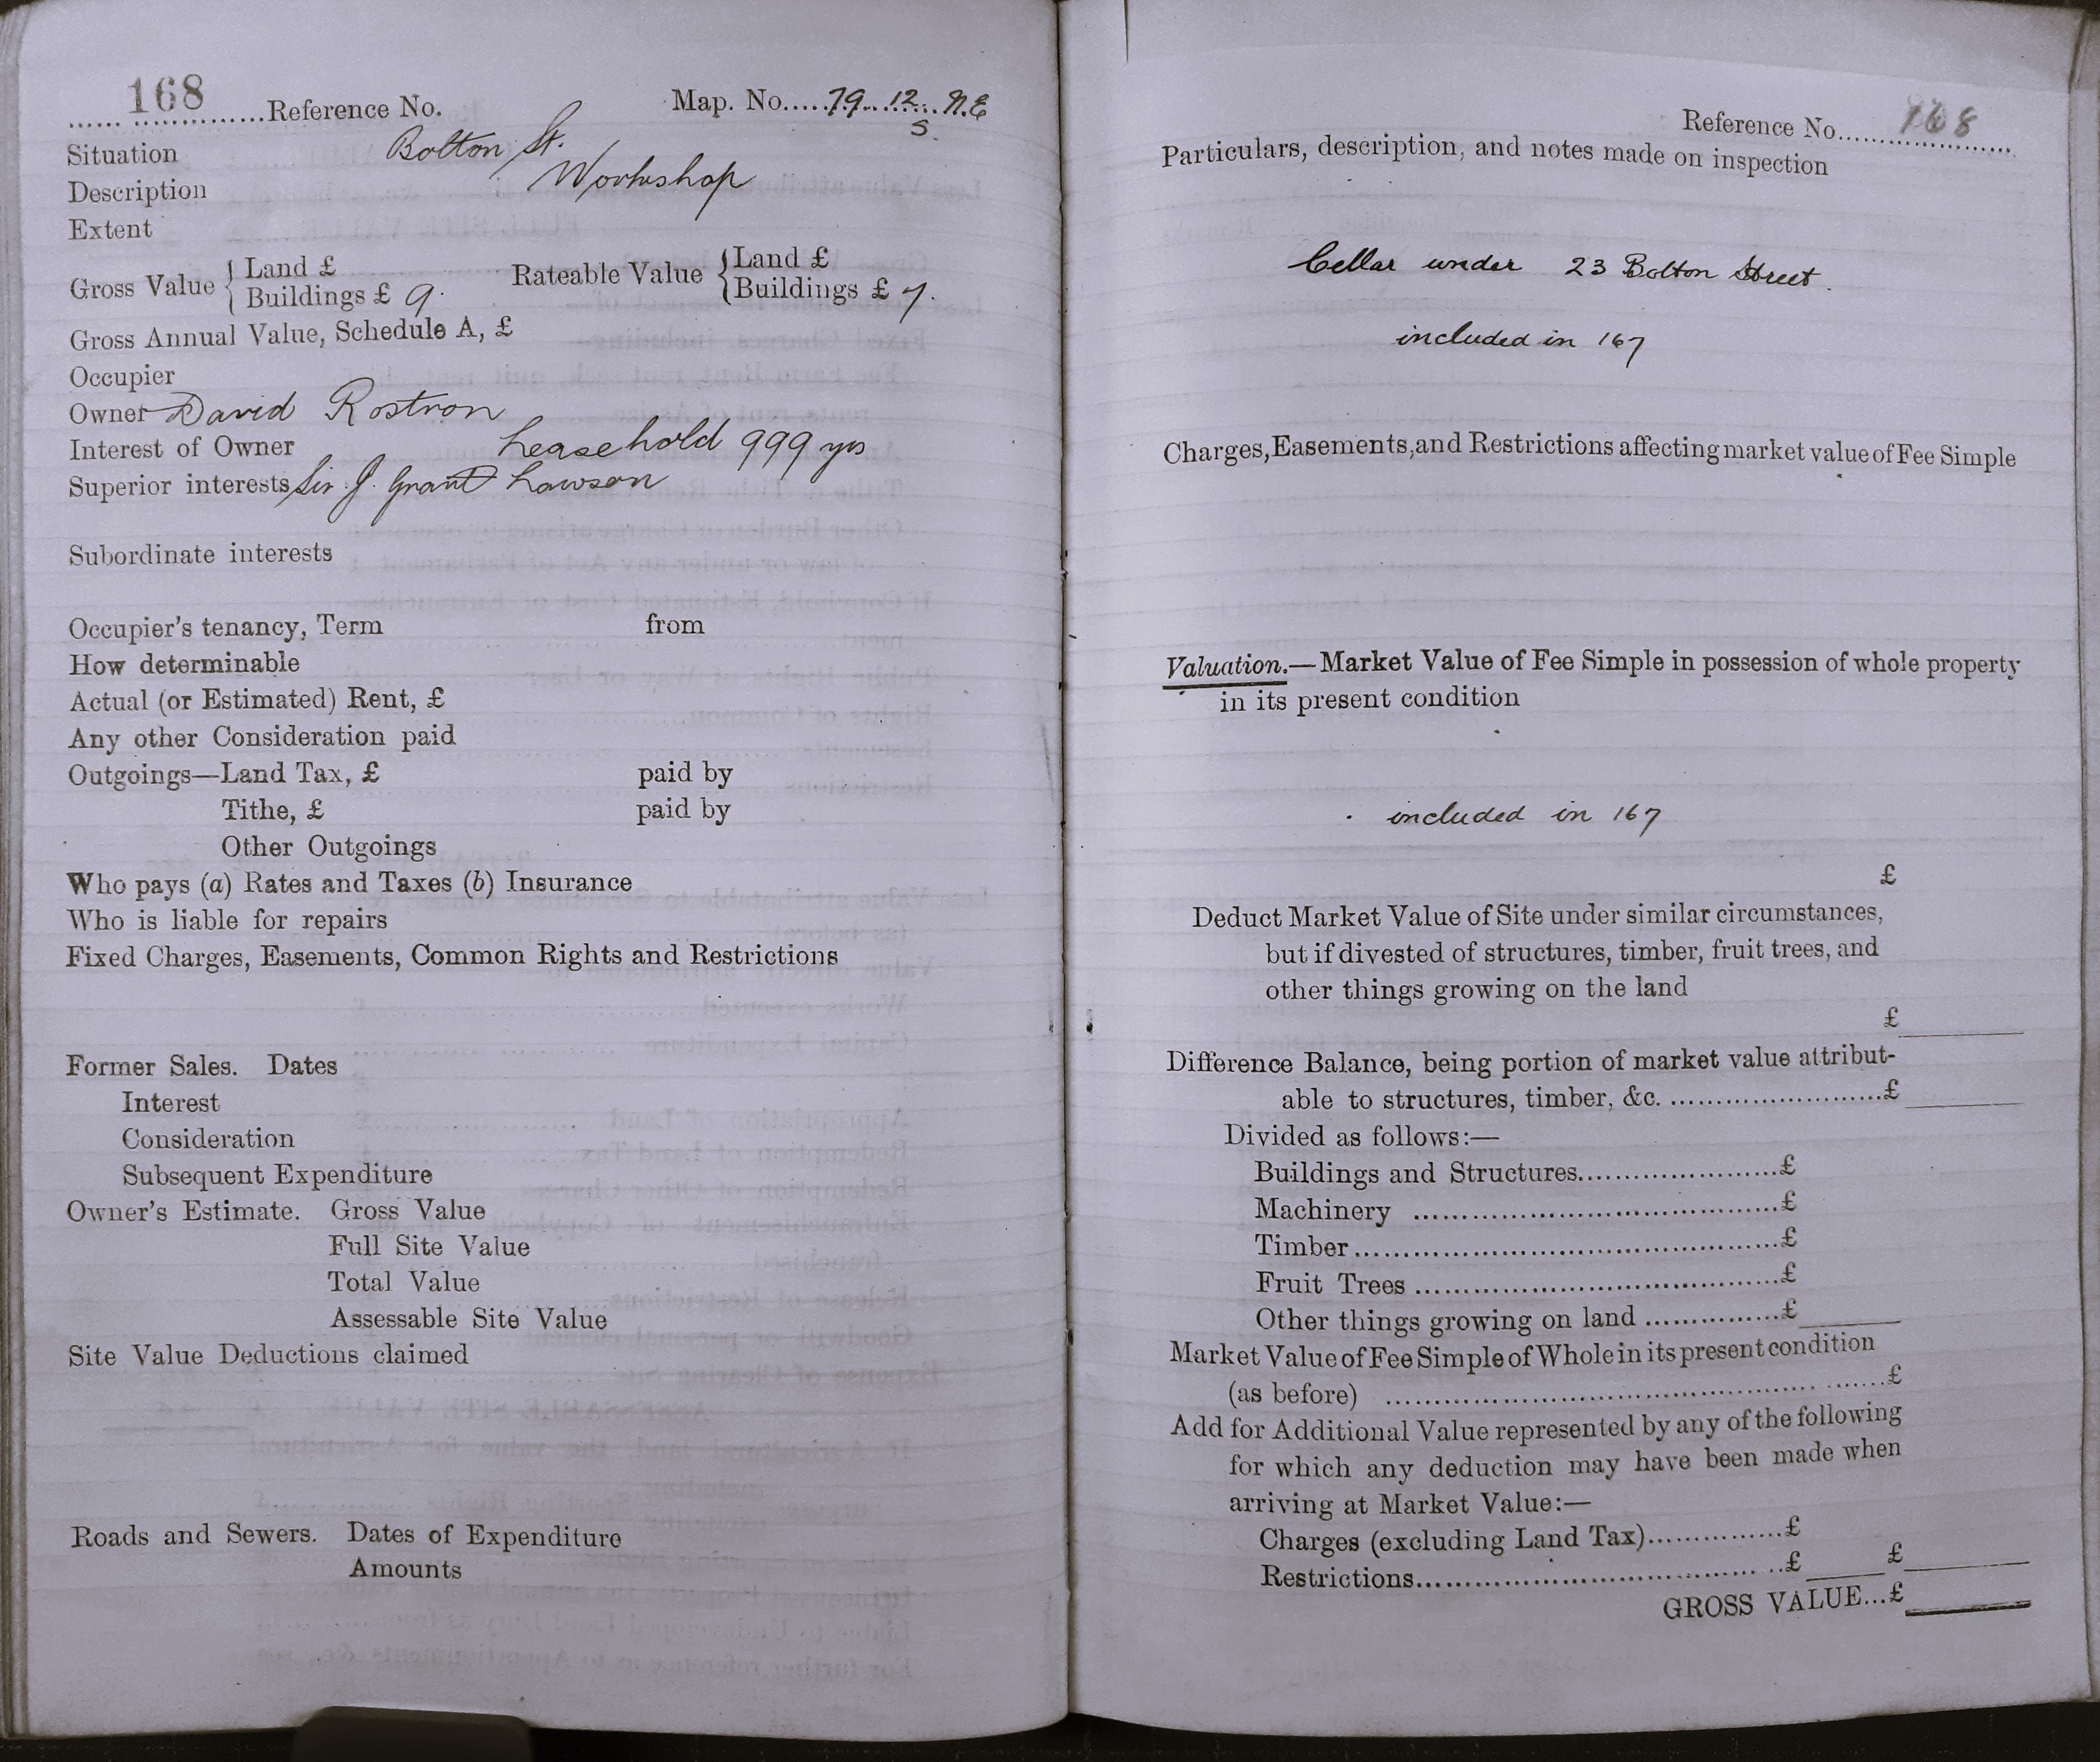 168 Reference No. Map. No. 79 12 N.E
5
Situation Bolton St.
Description Workshop
Extent
Gross Value { Land £ Rateable Value { Land £
Buildings £ 9. Buildings £ 7.
Gross Annual Value, Schedule A, £
Occupier
Owner David Rostron
Interest of Owner Leasehold 999 yrs
Superior interests Sir J. Grant Lawson
Subordinate interests
Occupier's tenancy, Term from
How determinable
Actual (or Estimated) Rent, £
Any other Consideration paid
Outgoings—Land Tax, £ paid by
Tithe, £ paid by
Other Outgoings
Who pays (a) Rates and Taxes (b) Insurance
Who is liable for repairs
Fixed Charges, Easements, Common Rights and Restrictions
Former Sales. Dates
Interest
Consideration
Subsequent Expenditure
Owner's Estimate. Gross Value
Full Site Value
Total Value
Assessable Site Value
Site Value Deductions claimed
Roads and Sewers. Dates of Expenditure
Amounts
Reference No. 168
Particulars, description, and notes made on inspection
Cellar under 23 Bolton Street.
included in 167
Charges, Easements, and Restrictions affecting market value of Fee Simple
Valuation.—Market Value of Fee Simple in possession of whole property
in its present condition
included in 167
£
Deduct Market Value of Site under similar circumstances,
but if divested of structures, timber, fruit trees, and
other things growing on the land
£
Difference Balance, being portion of market value attribut-
able to structures, timber, &c. ........................£
Divided as follows:—
Buildings and Structures........................£
Machinery ........................£
Timber........................£
Fruit Trees ........................£
Other things growing on land ...............£
Market Value of Fee Simple of Whole in its present condition
(as before) ........................£
Add for Additional Value represented by any of the following
for which any deduction may have been made when
arriving at Market Value:—
Charges (excluding Land Tax)...............£
Restrictions........................£ £
GROSS VALUE...£